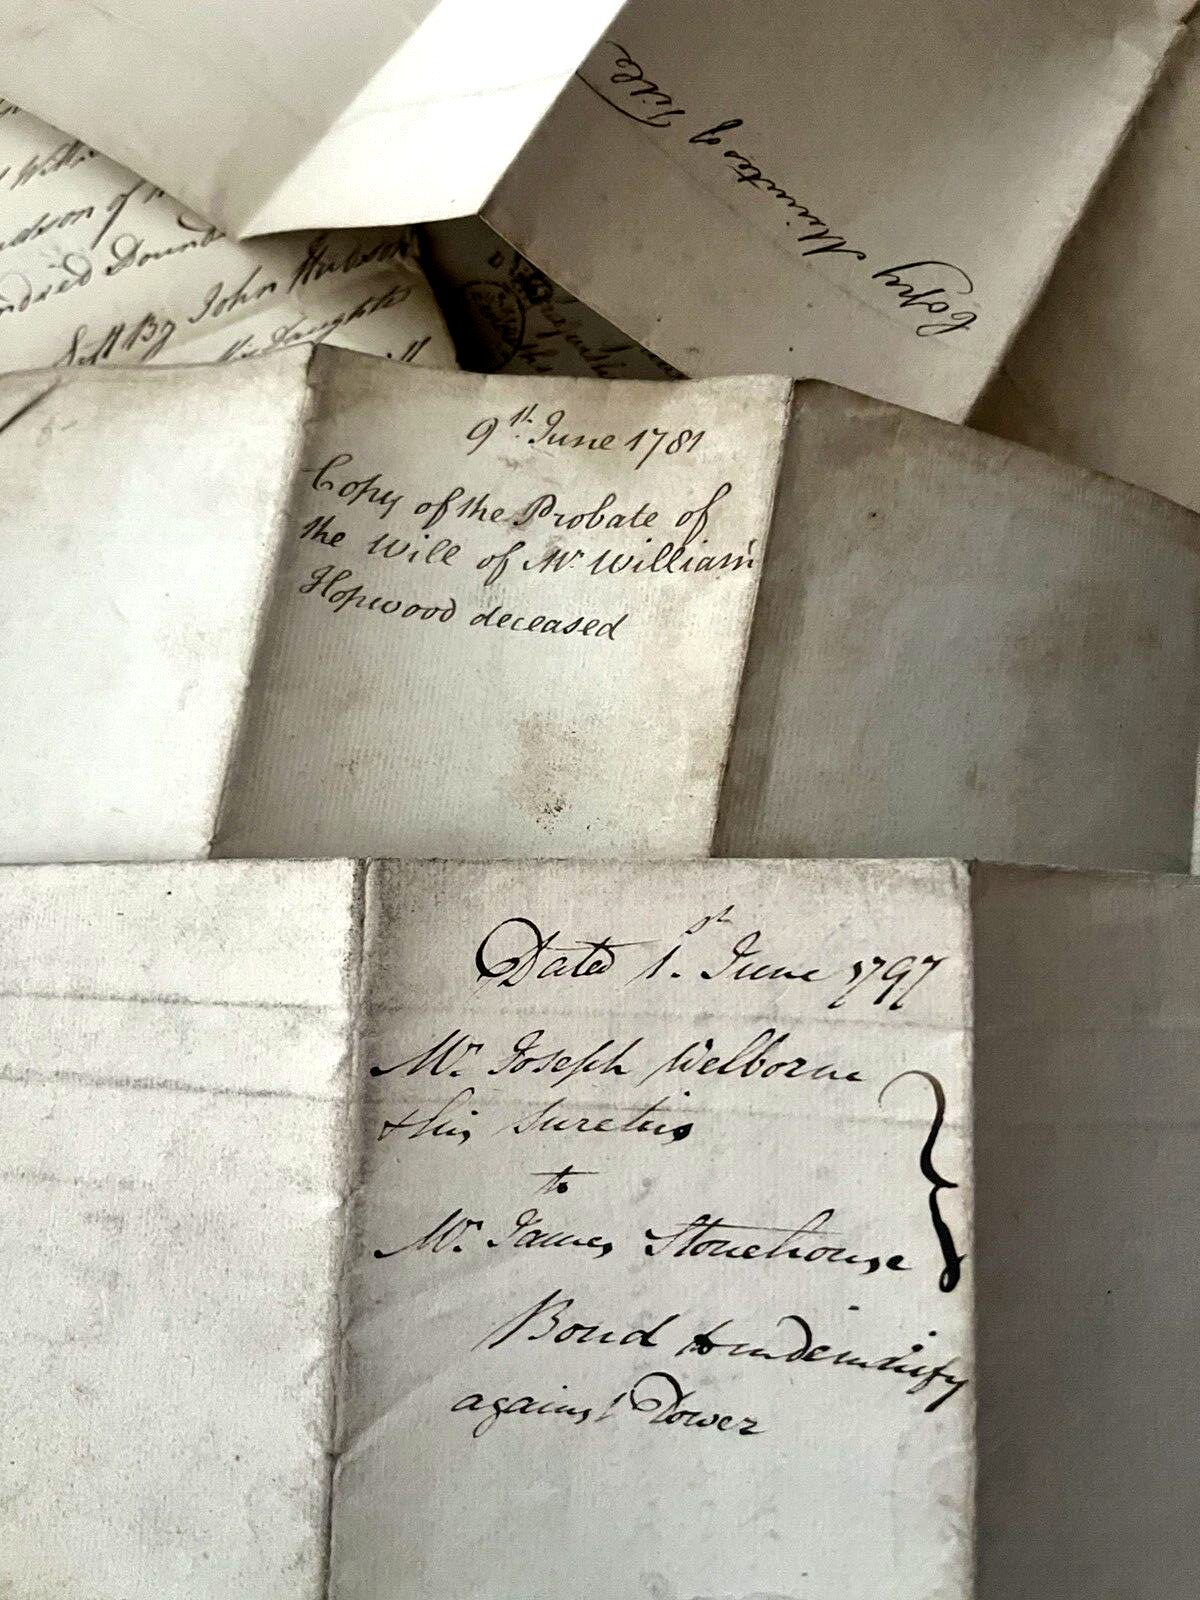 Copy Minutes of Title
of
Hundred Pounds
Left By John Hudson
Daughter
9th June 1781
Copy of the Probate of
the Will of Mr William
Hopwood deceased
Dated 1st June 1797
Mr Joseph Welborne
& his sureties
to
Mr James Stonehouse
}
Bond to indemnify
against Dower